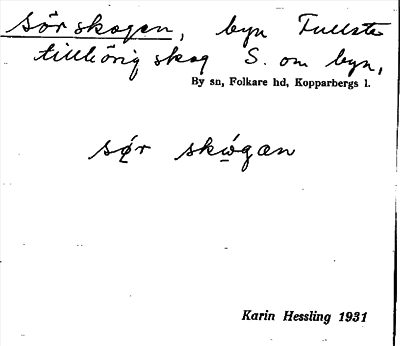 Sörskogen, byn Tullsta
tillhörig skog S. om byn,
By sn, Folkare hd, Kopparbergs l.
sǿr skωgan
Karin Hessling 1931